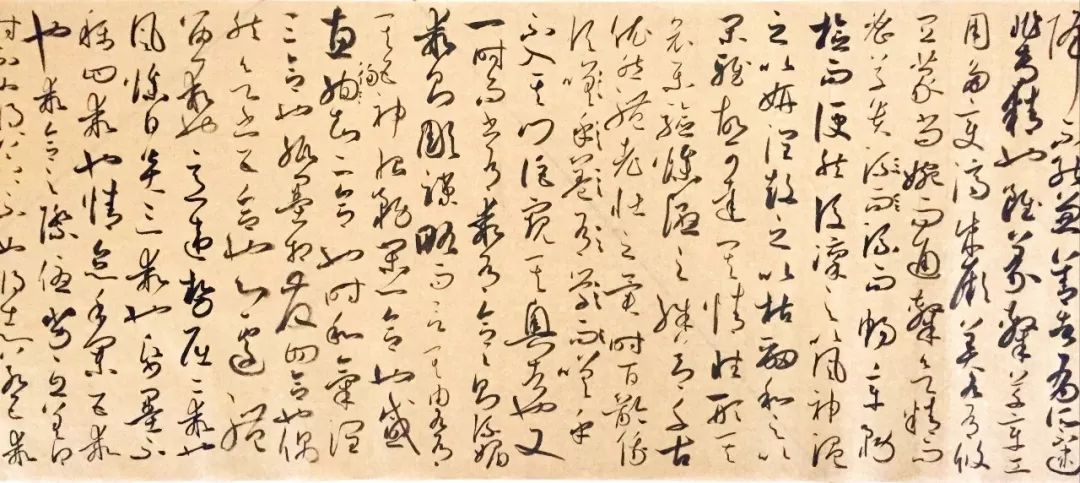 降不能兼善者有所不逮
非專精也雖篆隸草章工
用多變濟成厥美各有攸
宜篆尚婉而通隸欲精而
密草貴流而暢章務
檢而便然後凜之以風神溫
之以妍潤鼓之以枯勁和之以
閑雅故可達其情性形其
哀樂驗燥濕之殊節千古
依然體老壯之異時百齡俄
頃嗟乎
不入其門詎窺其奧者也又
一時而書有乖有合合則流媚
乖則彫疎略而言其由各有
其五神怡務閑一合也感
惠徇知二合也時和氣潤
三合也紙墨相發四合也偶
然欲書五合也心遽體
留一乖也意違勢屈二乖也
風燥日炎三乖也紙墨不
稱四乖也情怠手闌五乖
也乖合之際優劣互差得
時不如得器得器不如得志若五乖